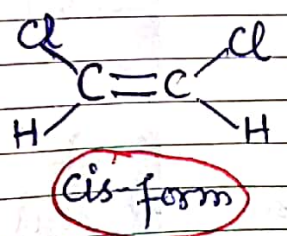 Cl Cl
C=C
H H
cis-form